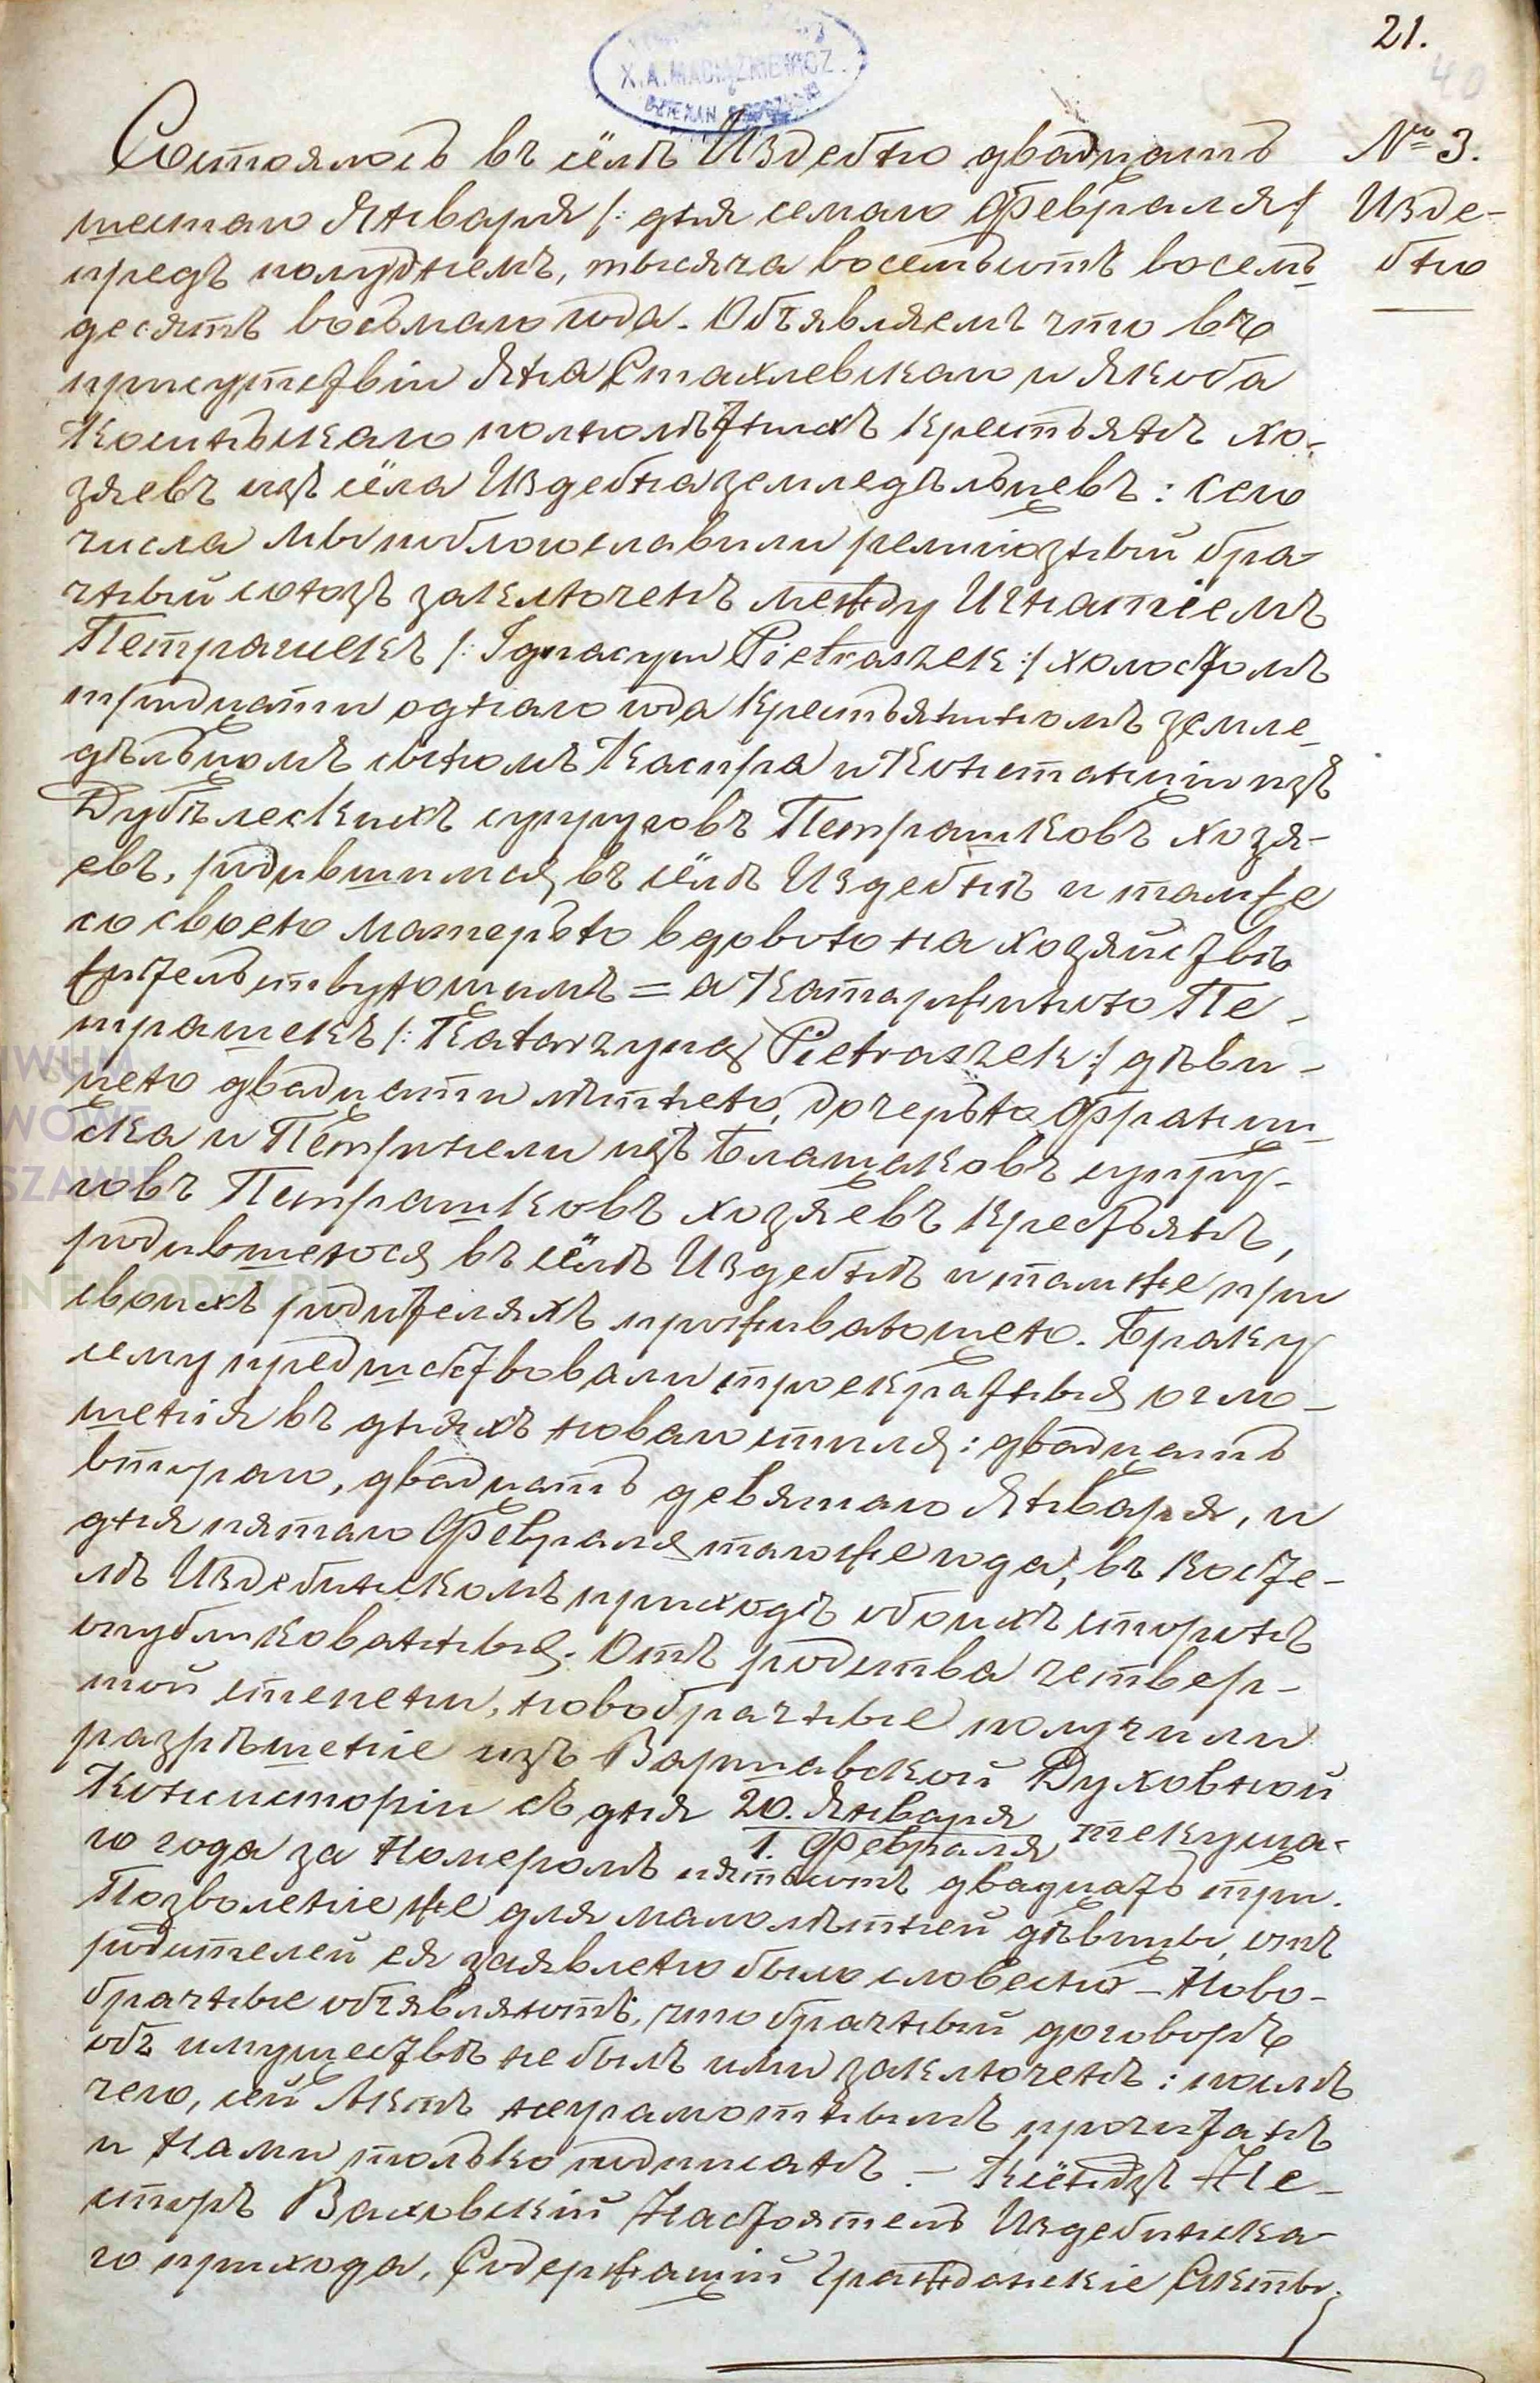 21.
40
X. A. MACIĄŻKIEWICZ.
DZIEKAN
№ 3.
Изде-
бно
Состоялось въ сёлѣ Издебно двадцать
шестаго Января /: дня семаго Февраля :/
предъ полуднемъ, тысяча восемьсотъ восемь
десятъ восьмаго года. Объявляемъ что въ
присутствіи Яна Стахлевскаго и Якоба
полнолѣтныхъ крестьянъ хо-
зяевъ изъ сёла Издебна земледѣльцевъ: сего
числа мы поблогославили религіозный бра-
чный союзъ заключенъ между Игнатіемъ
Петрашекъ /: Ignacym Pietraszek :/ холостомъ
тридцати однаго года крестьяниномъ земле-
дѣльцомъ сыномъ Каспра и Констанціи изъ
Дубѣлескихъ супруговъ Петрашковъ хозя-
евъ, родившимся въ сёлѣ Издебнѣ и тамже
со своею матерью вдовою на хозяйствѣ
жительствующимъ = а Катаржиною Пе-
трашекъ /: Katarzyną Pietraszek :/ дѣви-
цею двадцати лѣтнею, дочерью Францы-
ска и Петрунели изъ Блащаковъ супру-
говъ Петрашковъ хозяевъ крестьянъ,
родившеюся въ сёлѣ Издебнѣ и тамже при
своихъ родителяхъ проживающею. Браку
сему предшествовали троекратныя огло-
шенія въ дняхъ новаго стиля: двадцать
втораго, двадцать девятаго Января, и
дня пятаго Февраля тогоже года; въ косте-
лѣ Издебинскомъ приходѣ обоихъ сторонъ
опубликованныя. Отъ родства четвер-
той степени, новобрачные получили
разрѣшеніе изъ Варшавской Духовной
Консисторіи съ дня 20. Января
1. Февраля текуща-
го года за Номеромъ пятьсотъ двадцать три.
Позволеніе же для малолѣтней дѣвицы, отъ
родителей ея заявлено было словесно – Ново-
брачные объявляютъ, что брачный договоръ
объ имуществѣ не былъ ими заключенъ: послѣ
чего, сей Актъ неграмотнымъ прочитанъ
и Нами только подписанъ. – Ксёндзъ Не-
сторъ Ваховскій Настоятель Издебинска-
го прихода, Содержащій Гражданскіе Акты.